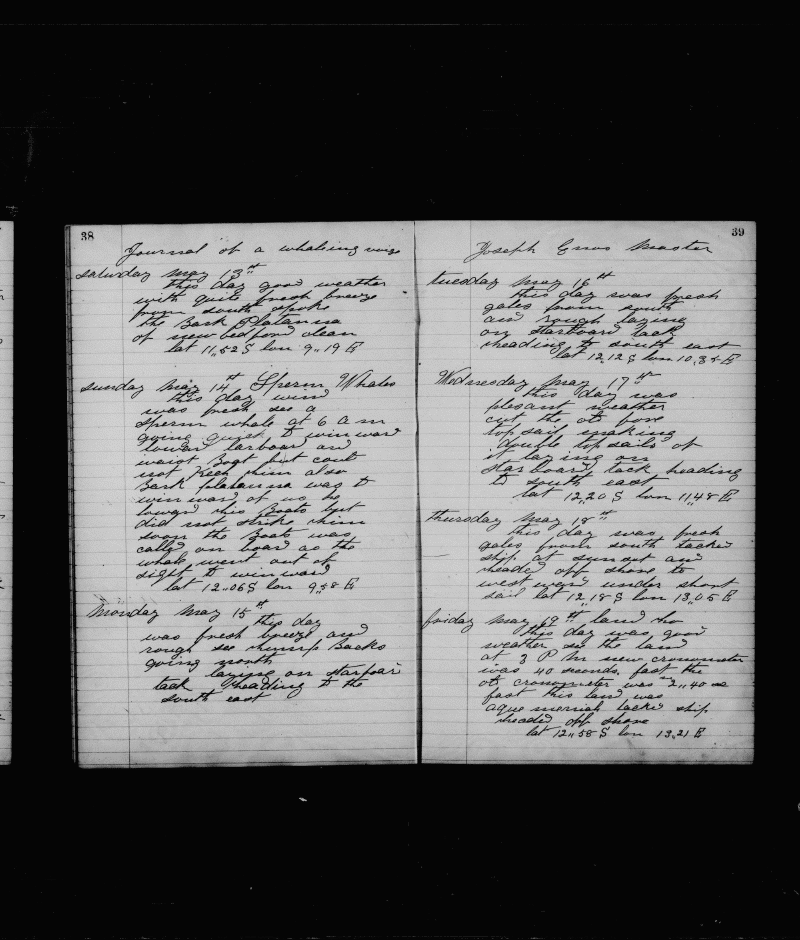 38
Journal of a whaleing voige
saturday may 13th
this day good weather
with quite fresh breeze
from south spoke
the Bark Platanna
of new bedford clean
lat 11,,52 S lon 9,,19 E
sunday may 14th Sperm Whales
this day wind
was fresh see a
sperm whale at 6 a m
going quick to winward
lowerd larboard and
waist Boat but coult
not Keep him also
Bark platanna was to
winward of us he
lowerd his Boats but
did not strike him
soon the Boats was
calld on board as the
whale went out of
sight to winward
lat 12,,06 S lon 9,,58 E
Monday may 15th
this day
was fresh breeze and
rough see hump Backs
going north
laying on starboard
tack heading to the
south east
39
Joseph Enos Master
tuesday may 16th
this day was fresh
gales from south
and rough laying
on starboard tack
heading to south east
lat 12,,12 S lon 10,,35 E
Wednesday may 17th
this day was
plesant weather
cut the old fore
top sail making
double top sails of
it laying on
starboard tack heading
to south east
lat 12,,20 S lon 11,,48 E
thursday may 18th
this day was fresh
gales from south tacked
ship at sun out and
headed off shore to
westward under short
sail lat 12,,18 S lon 13,,05 E
friday may 19th land ho
this day was good
weather see the land
at 3 P M new cronometer
was 40 seconds fast the
old cronometer was 2,,40 se
fast this land was
headed off shore
lat 12,,58 S lon 13,,21 E